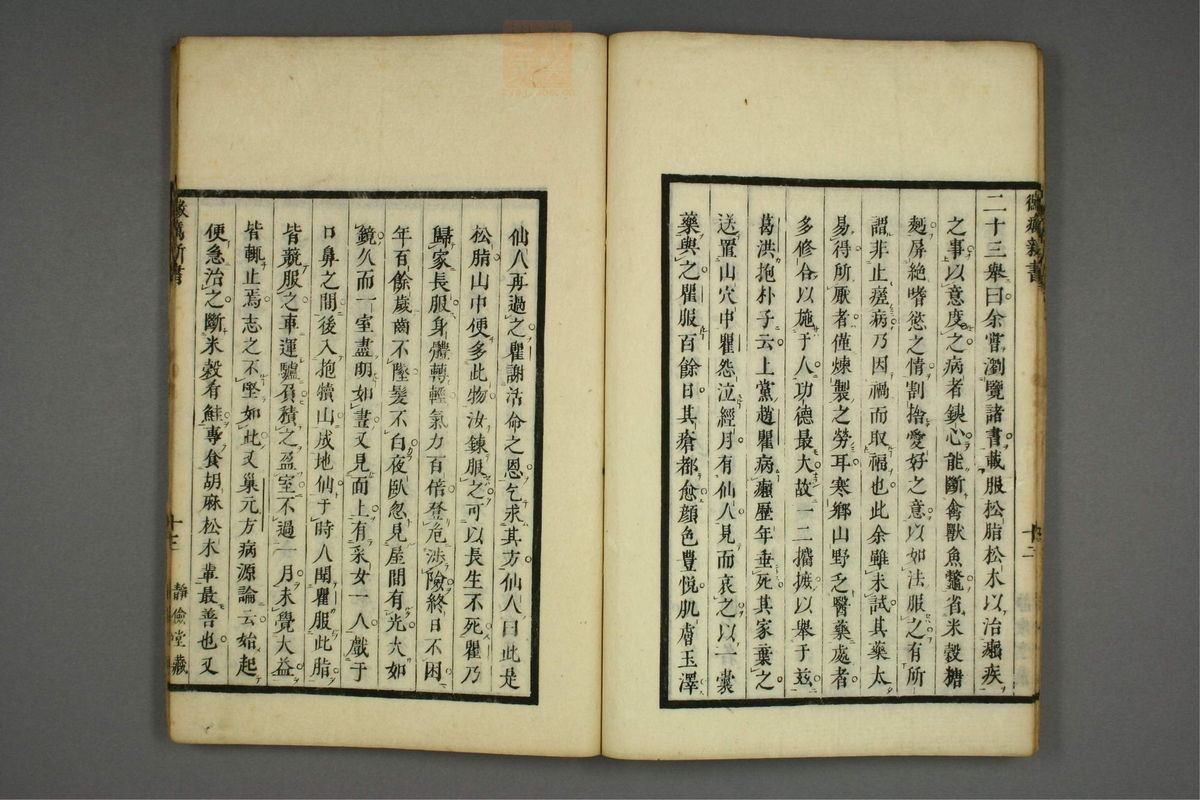 二十三舉曰余嘗瀏覽諸書載服松脂松木以治癩疾
之事以意度之病者鉄心能斷禽獸魚鼈省米穀糖
麪屏絶嗜慾之情割捨愛好之意以如法服之有所
謂非止痊病乃因禍而取福也此余雖未試其藥太
易得所厭者僅煉製之勞耳寒鄉山野乏醫藥處者
多修合以施于人功德最大故一二擂摭以舉于玆
葛洪抱朴子云上黨趙瞿病癩歷年垂死其家棄之
送置山穴中瞿怨泣經月有仙人見而哀之以一囊
藥與之瞿服百餘日其瘡都愈顔色豐悅肌膚玉澤
十二
仙人再過之瞿謝活命之恩乞求其方仙人曰此是
松脂山中便多此物汝鍊服之可以長生不死瞿乃
歸家長服身體轉輕氣力百倍登危涉險終日不困
年百餘歲齒不墜髮不白夜臥忽見屋間有光大如
鏡久而一室盡明如晝又見面上有采女一人戲于
口鼻之間後入抱犢山成地仙于時人聞瞿服此脂
皆競服之車運驢負積之盈室不過一月未覺大益
皆輒止焉志之不堅如此又巢元方病源論云始起
便急治之斷米穀肴鮭專食胡麻松木輩最善也又
癩新書
十三
靜儉堂藏